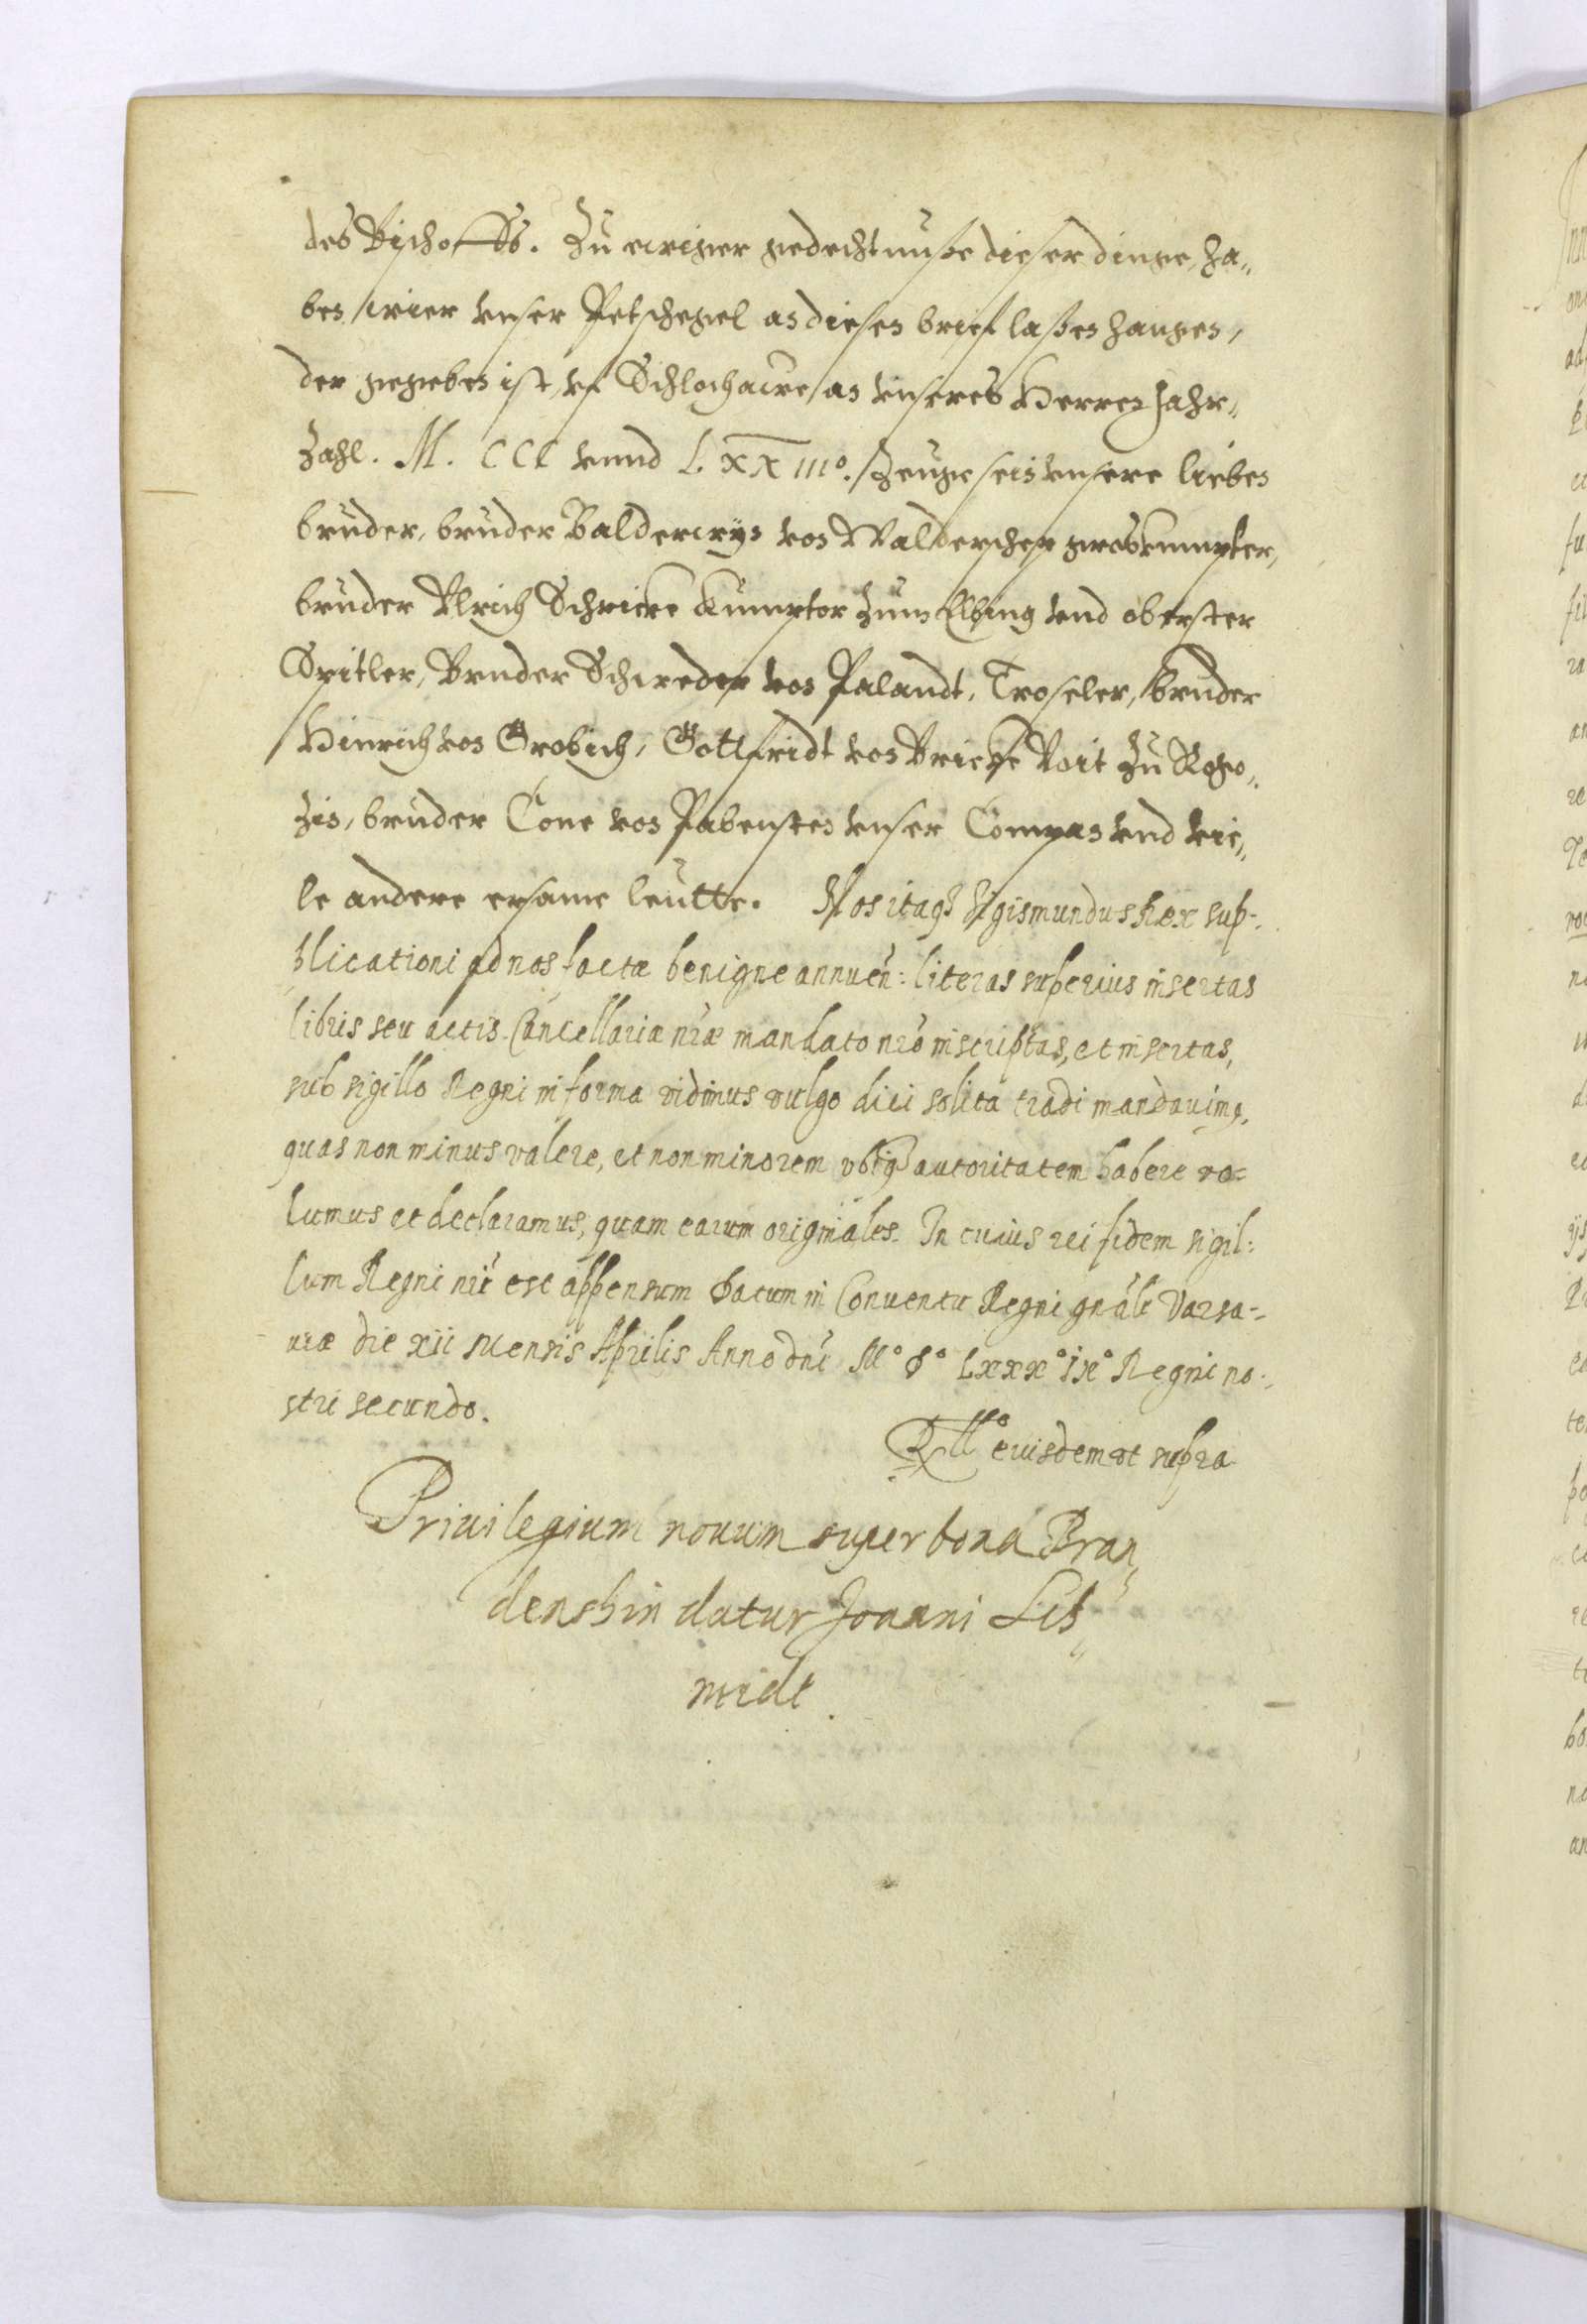 des Bischoffs. Zu ewiger gedechtnuße dieser dinge, ha„
ben wier vnser Petschegel an diesen brief laßen hangen,
der gegeben ist, vf Schlochawe, an vnseres Herren Jahr„
zahl. M. CCC vnnd LXXIIIº. Zeuge sein vnsere lieben
brüder, brüder Balderwyn von Walderschen groskumpter,
brüder Vlrich Schricke Kumptor zum Elbing vnd oberster
Spitler, Bruder Schweder von Palandt, Troseler, bruder
Hinrich von Grobich, Gottfridt von Bricke Voit zu Rogo„
zin, brüder Cone von Pabensten vnser Compan vnd vie„
le andere ersame leütte. Nos itaq3 Sigismundus Rex sup-
plicationi ad nos factæ benigne annuen: literas superius insertas
libris seu actis Cancellariæ nræ mandato nro inscriptas, et insertas,
sub sigillo Regni in forma vidimus vulgo dici solita tradi mandauimq,
quas non minus valere, et non minorem vbiq3 autoritatem habere vo=
lumus et declaramus, quam earum originales. In cuius rei fidem sigil:
lum Regni nri est appensum Datum in Conuentu Regni gnali Varsa-
uiæ die xii mensis Aprilis Anno dni Mº Dº Lxxxº ixº Regni no-
stri secundo.
Rllº eiusdem vt supra
Priuilegium nouum super bona Bran„
denshin datur Joanni Sch„
midt.